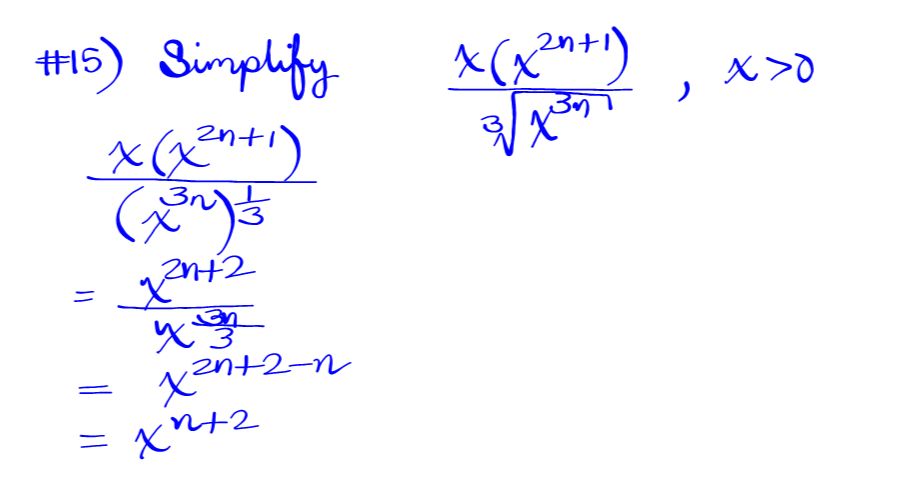 #15) Simplify x(x^{2n+1}) / ∛(x^{3n}) , x>0
x(x^{2n+1}) / (x^{3n})^{1/3}
= x^{2n+2} / x^{3n/3}
= x^{2n+2-n}
= x^{n+2}